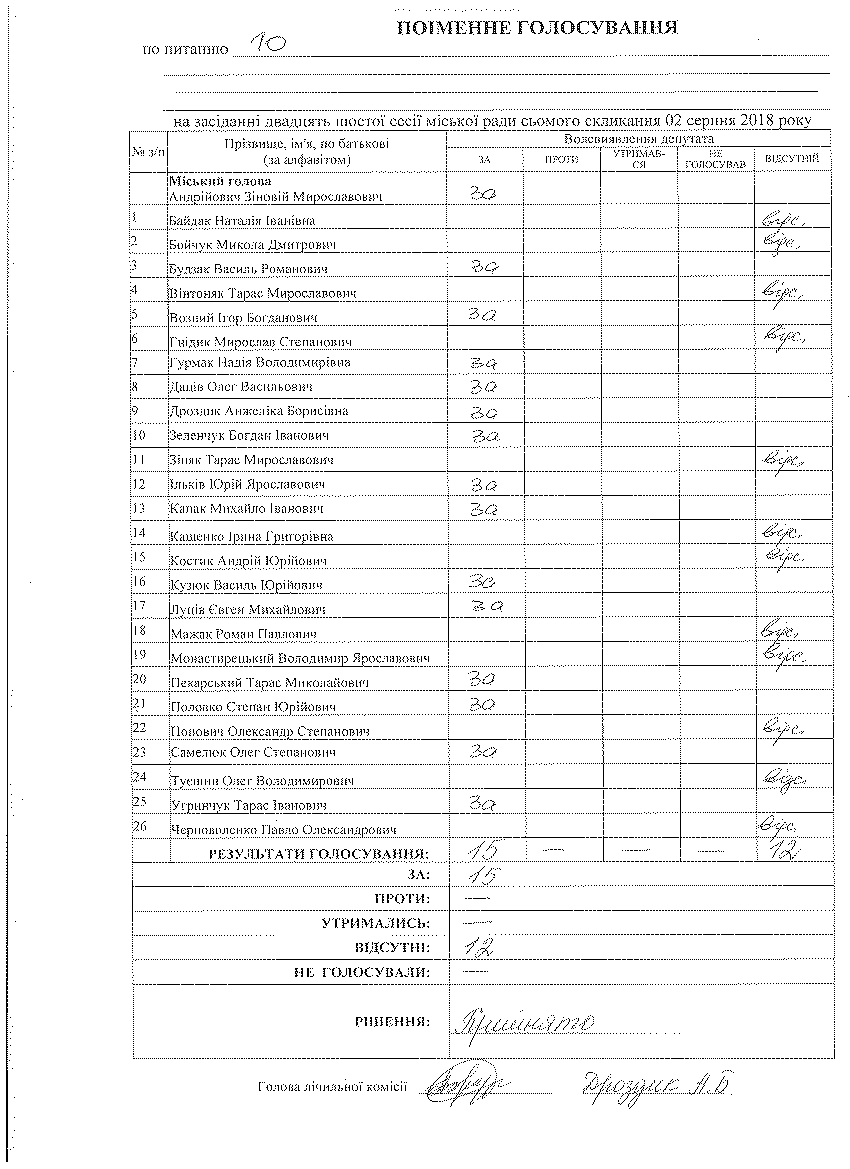 ПОІМЕННЕ ГОЛОСУВАННЯ
по питанню 10
на засіданні двадцять шостої сесії міської ради сьомого скликання 02 серпня 2018 року
№ з/п Прізвище, ім'я, по батькові (за алфавітом) Волевиявлення депутата
ЗА ПРОТИ УТРИМАВ-СЯ НЕ ГОЛОСУВАВ ВІДСУТНІЙ
Міський голова
Андрійович Зіновій Мирославович за
1 Байдак Наталія Іванівна відс.
2 Бойчук Микола Дмитрович відс.
3 Будзак Василь Романович за
4 Вінтоняк Тарас Мирославович відс.
5 Возний Ігор Богданович за
6 Гнідик Мирослав Степанович відс.
7 Гурмак Надія Володимирівна за
8 Даців Олег Васильович за
9 Дроздик Анжеліка Борисівна за
10 Зеленчук Богдан Іванович за
11 Зіняк Тарас Мирославович відс.
12 Ільків Юрій Ярославович за
13 Капак Михайло Іванович за
14 Кащенко Ірина Григорівна відс.
15 Костик Андрій Юрійович відс.
16 Кузюк Василь Юрійович за
17 Луців Євген Михайлович за
18 Мажак Роман Павлович відс.
19 Монастирецький Володимир Ярославович відс.
20 Пекарський Тарас Миколайович за
21 Половко Степан Юрійович за
22 Попович Олександр Степанович відс.
23 Самелюк Олег Степанович за
24 Олег Володимирович відс.
25 Угринчук Тарас Іванович за
26 Черноволенко Павло Олександрович відс.
РЕЗУЛЬТАТИ ГОЛОСУВАННЯ: 15 — — — 12
ЗА: 15
ПРОТИ: —
УТРИМАЛИСЬ: —
ВІДСУТНІ: 12
НЕ ГОЛОСУВАЛИ: —
РІШЕННЯ: Прийнято
Голова лічильної комісії Дроздик А.Б